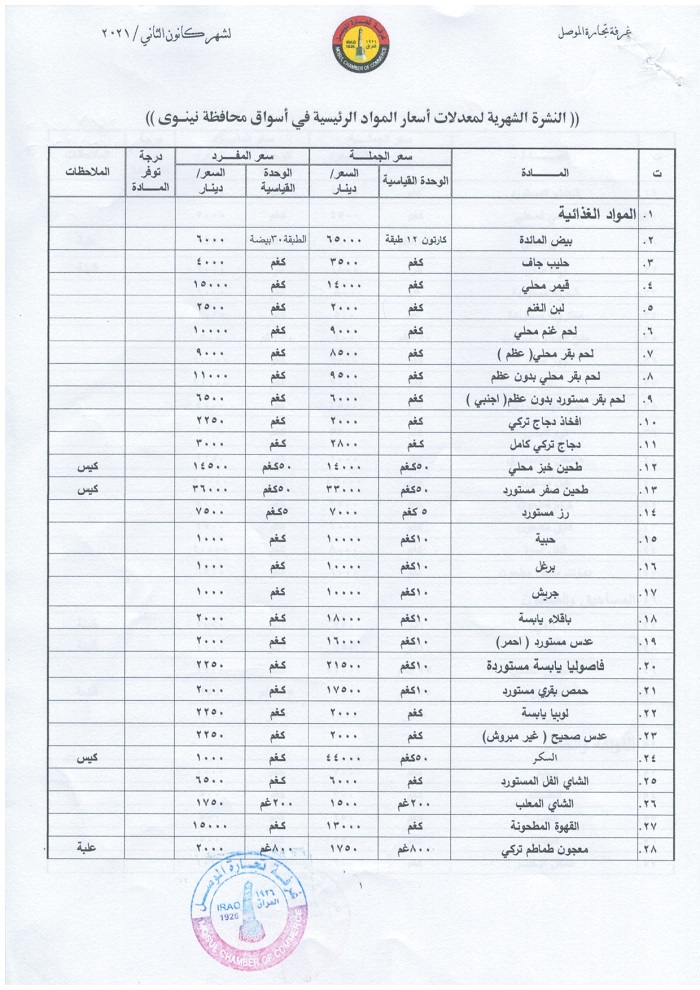 غرفة تجارة الموصل
غرفة تجارة الموصل
١٩٢٦
IRAQ
العراق
1926
MOSUL CHAMBER OF COMMERCE
لشهر كانون الثاني / ٢٠٢١
(( النشرة الشهرية لمعدلات أسعار المواد الرئيسية في أسواق محافظة نينـوى ))
ت المــــــادة سعر الجملـــة سعر المفـــرد درجة توفر المـــادة الملاحظات
الوحدة القياسية السعر/ دينار الوحدة القياسية السعر/ دينار
١. المواد الغذائية
٢. بيض المائدة كارتون ١٢ طبقة ٦٥٠٠٠ الطبقة ٣٠بيضة ٦٠٠٠
٣. حليب جاف كغم ٣٥٠٠ كغم ٤٠٠٠
٤. قيمر محلي كغم ١٤٠٠٠ كغم ١٥٠٠٠
٥. لبن الغنم كغم ٢٠٠٠ كغم ٢٥٠٠
٦. لحم غنم محلي كغم ٩٠٠٠ كغم ١٠٠٠٠
٧. لحم بقر محلي( عظم ) كغم ٨٥٠٠ كغم ٩٠٠٠
٨. لحم بقر محلي بدون عظم كغم ٩٥٠٠ كغم ١١٠٠٠
٩. لحم بقر مستورد بدون عظم( اجنبي ) كغم ٦٠٠٠ كغم ٦٥٠٠
١٠. افخاذ دجاج تركي كغم ٢٠٠٠ كغم ٢٢٥٠
١١. دجاج تركي كامل كغم ٢٨٠٠ كغم ٣٠٠٠
١٢. طحين خبز محلي ٥٠كغم ١٤٠٠٠ ٥٠كغم ١٤٥٠٠ كيس
١٣. طحين صفر مستورد ٥٠كغم ٣٣٠٠٠ ٥٠كغم ٣٦٠٠٠ كيس
١٤. رز مستورد ٥ كغم ٧٠٠٠ ٥كغم ٧٥٠٠
١٥. حبية ١٠كغم ١٠٠٠٠ كغم ١٠٠٠
١٦. برغل ١٠كغم ١٠٠٠٠ كغم ١٠٠٠
١٧. جريش ١٠كغم ١٠٠٠٠ كغم ١٠٠٠
١٨. باقلاء يابسة ١٠كغم ١٨٠٠٠ كغم ٢٠٠٠
١٩. عدس مستورد ( احمر) ١٠كغم ١٦٠٠٠ كغم ٢٠٠٠
٢٠. فاصوليا يابسة مستوردة ١٠كغم ٢١٥٠٠ كغم ٢٢٥٠
٢١. حمص بقري مستورد ١٠كغم ١٧٥٠٠ كغم ٢٠٠٠
٢٢. لوبيا يابسة كغم ٢٠٠٠ كغم ٢٢٥٠
٢٣. عدس صحيح ( غير مبروش) كغم ٢٠٠٠ كغم ٢٢٥٠
٢٤. السكر ٥٠كغم ٤٤٠٠٠ كغم ١٠٠٠ كيس
٢٥. الشاي الفل المستورد كغم ٦٠٠٠ كغم ٦٥٠٠
٢٦. الشاي المعلب ٢٠٠غم ١٥٠٠ ٢٠٠غم ١٧٥٠
٢٧. القهوة المطحونة كغم ١٣٠٠٠ كغم ١٥٠٠٠
٢٨. معجون طماطم تركي ٨٠٠غم ١٧٥٠ ٨٠٠غم ٢٠٠٠ علبة
غرفة تجارة الموصل
١٩٢٦
IRAQ
العراق
1926
MOSUL CHAMBER OF COMMERCE
١